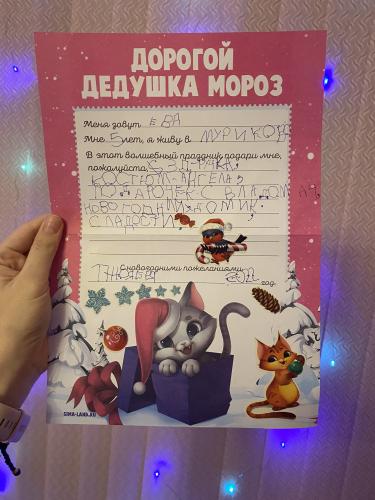 ДОРОГОЙ
ДЕДУШКА МОРОЗ
Меня зовут ЕВА
Мне 5 лет, я живу в МУРИКОВО
В этот волшебный праздник подари мне,
пожалуйста,
КОСТЮМ АНГЕЛА,
НОВОГОДНИЙ ДОМИК
СЛАДОСТИ
С новогодними пожеланиями
год
SIMA-LAND.RU